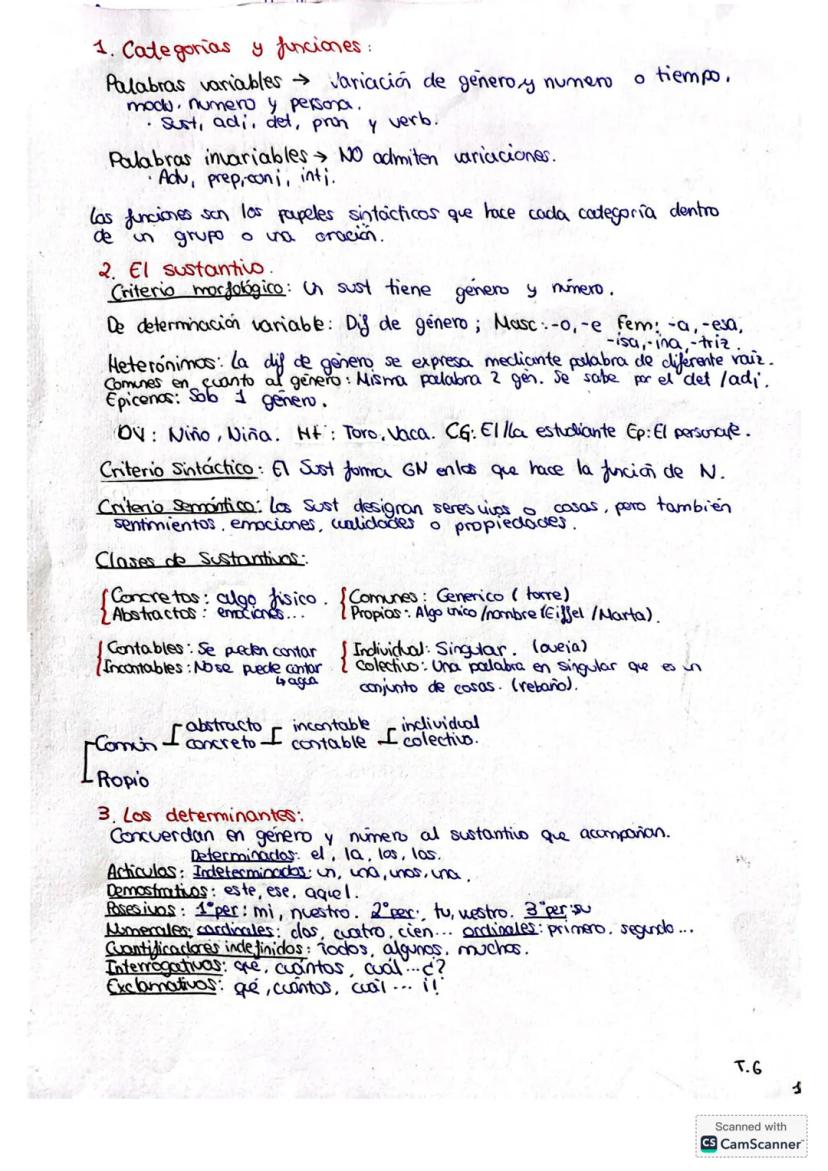 1. Categorías y funciones:
Palabras variables → Variación de género y numero o tiempo,
modo, numero y persona.
· Sust, adj, det, pron y verb.
Palabras invariables → NO admiten variaciones.
· Adv, prep, conj, intj.
Las funciones son los papeles sintácticos que hace cada categoría dentro
de un grupo o una oración.
2. El sustantivo.
Criterio morfológico: Un sust tiene género y número.
De determinación variable: Dif de género; Masc: -o, -e Fem: -a, -esa,
-isa, -ina, -triz.
Heterónimos: La dif de género se expresa mediante palabra de diferente raiz.
Comunes en cuanto al género: Misma palabra 2 gén. Se sabe por el det /adj.
Epicenos: Solo 1 género.
DV: Niño, Niña. Ht: Toro, Vaca. CG: El/la estudiante Ep: El personaje.
Criterio Sintáctico: El Sust forma GN en los que hace la función de N.
Criterio Semántico: Los Sust designan seres vivos o cosas, pero también
sentimientos, emociones, cualidades o propiedades.
Clases de Sustantivos:
Concretos: algo físico. Comunes: Generico (torre)
Abstractos: emociones... Propios: Algo único/nombre (Eiffel /Marta).
Contables: Se pueden contar Individual: Singular. (oveja)
Incontables: No se puede contar Colectivo: Una palabra en singular que es un
↳ agua conjunto de cosas. (rebaño).
abstracto incontable individual
Común concreto contable colectivo.
Propio
3. Los determinantes:
Concuerdan en género y número al sustantivo que acompañan.
Determinados: el, la, los, las.
Artículos: Indeterminados: un, una, unos, una.
Demostrativos: este, ese, aquel.
Posesivos: 1ª per: mi, nuestro. 2ª per: tu, vestro. 3ª per: su
Numerales: cardinales: dos, cuatro, cien... ordinales: primero, segundo...
Cuantificadores indefinidos: Todos, algunos, muchos.
Interrogativos: qué, cuántos, cuál...¿?
Exclamativos: qué, cuántos, cuál... ¡!
T.6
1
Scanned with
CS CamScanner